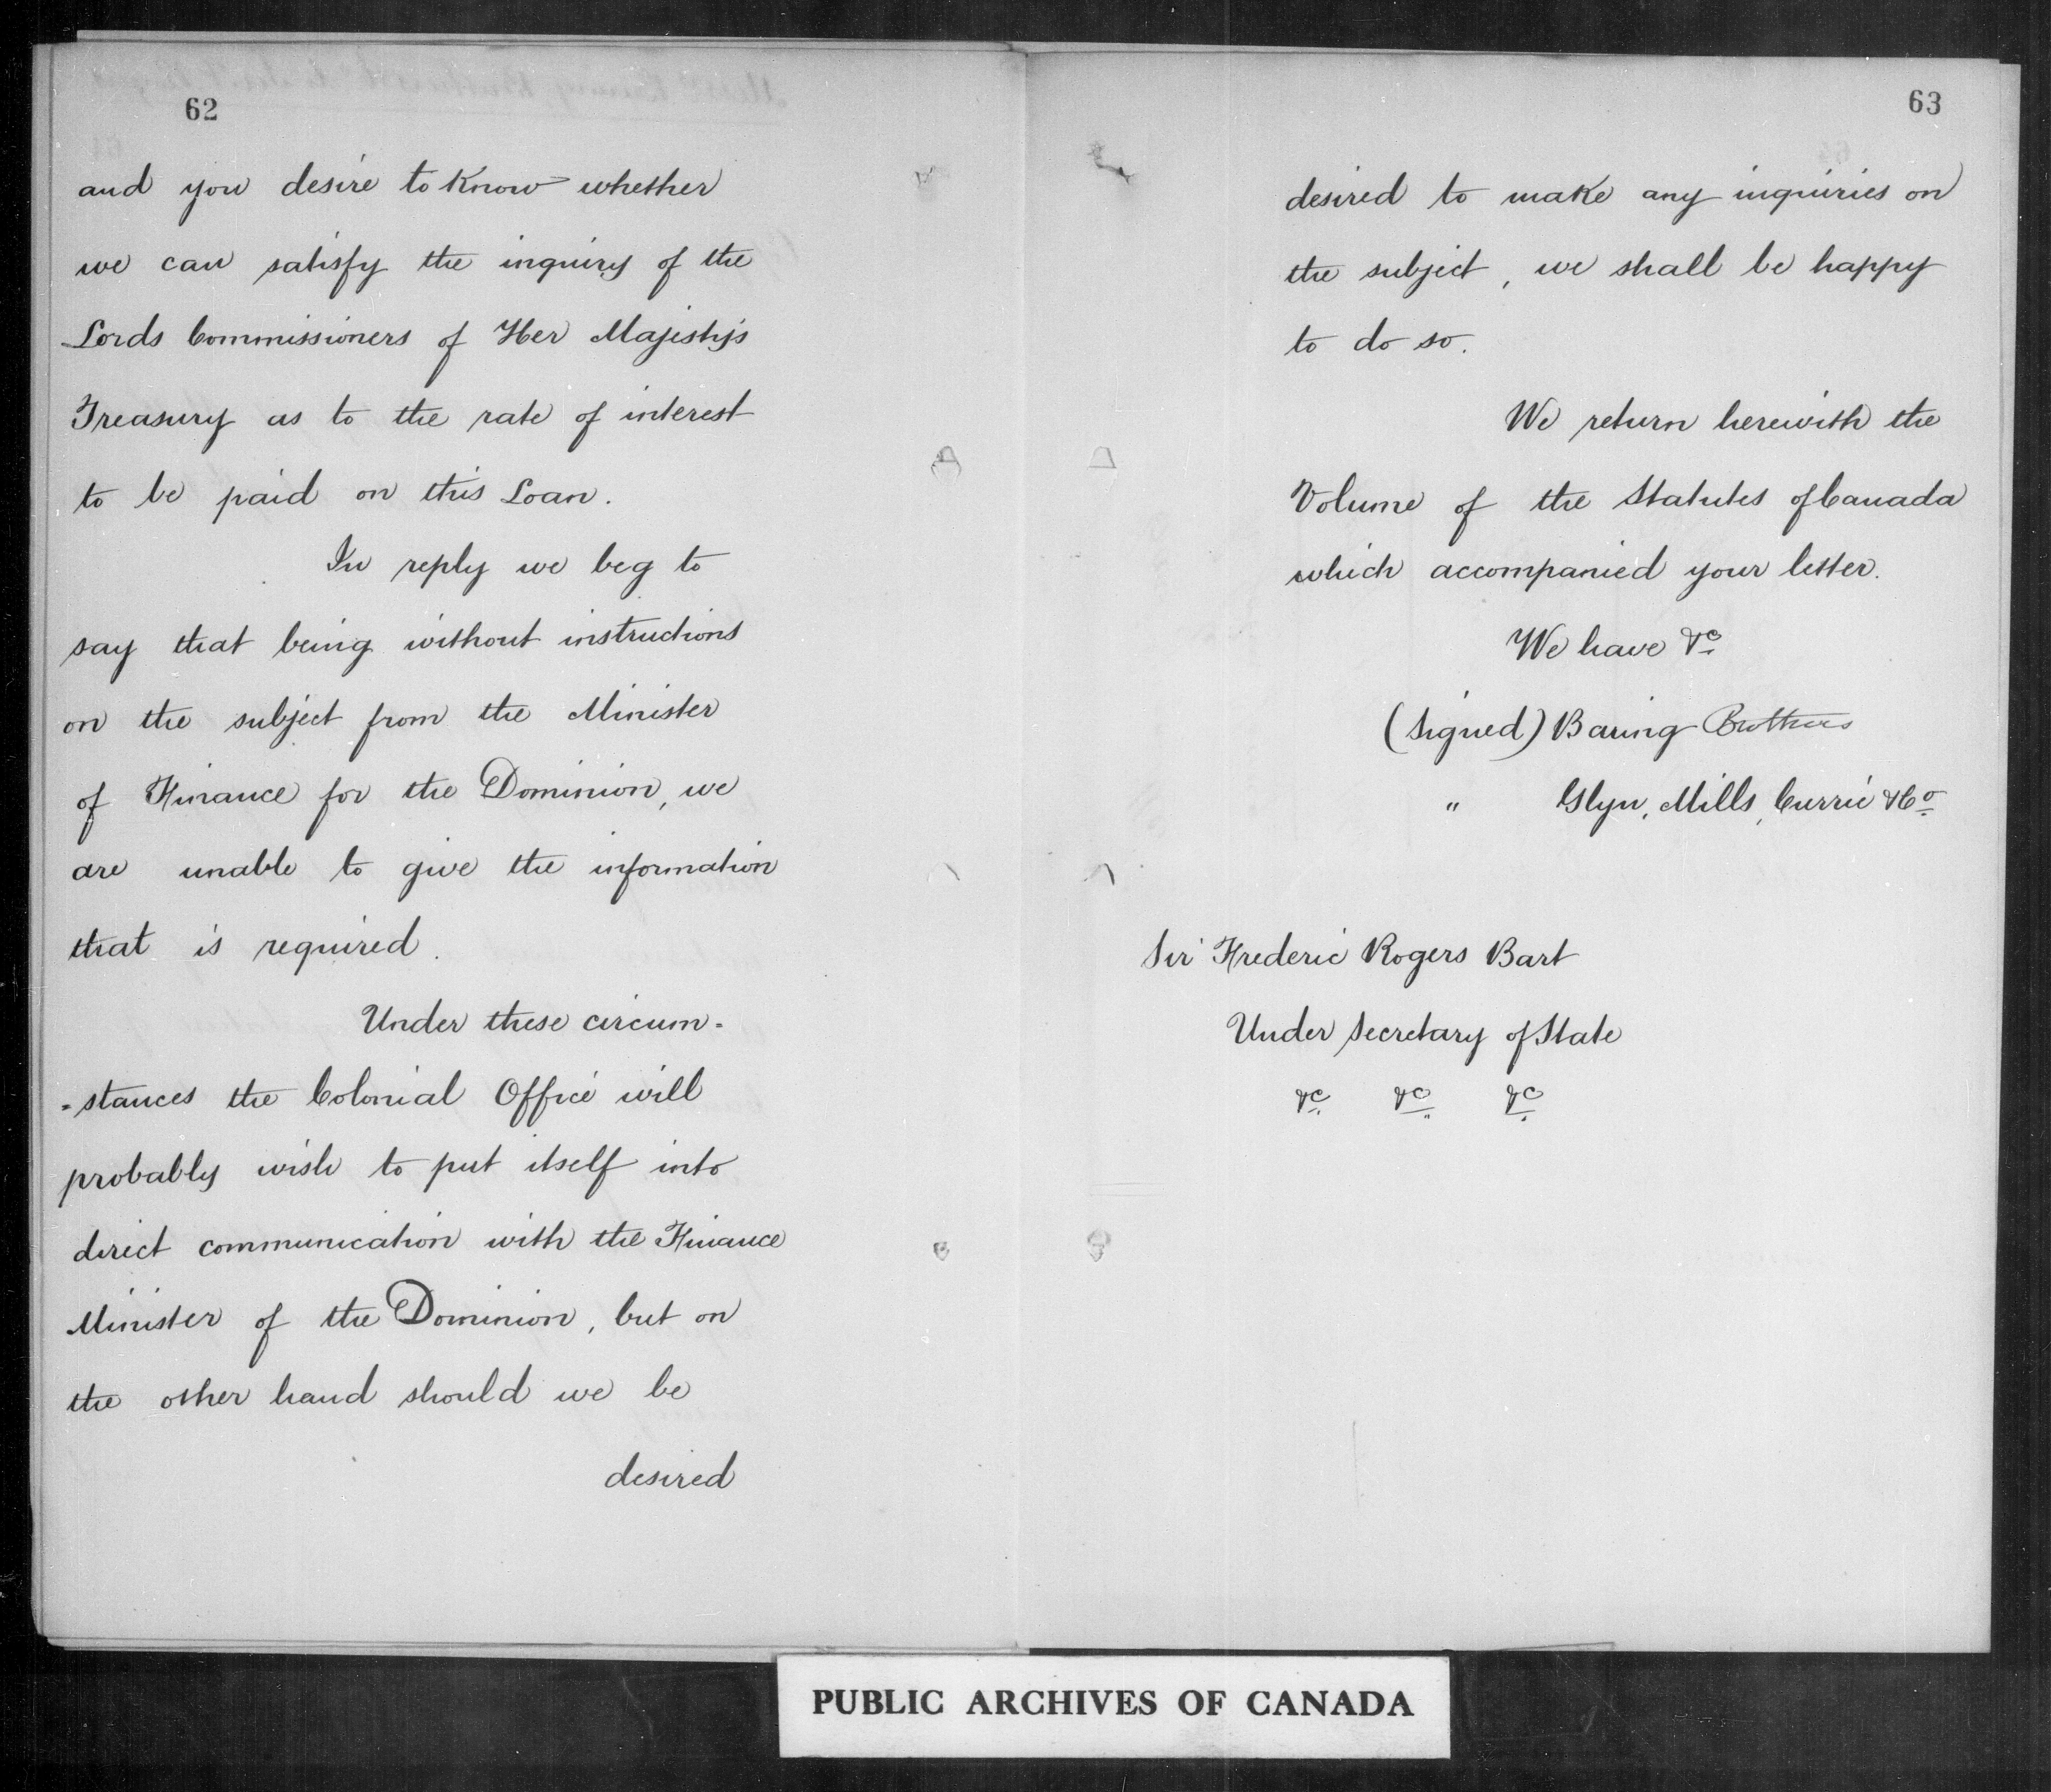 62
and you desire to know whether
we can satisfy the inquiry of the
Lords Commissioners of Her Majesty's
Treasury as to the rate of interest
to be paid on this Loan.
In reply we beg to
say that being without instructions
on the subject from the Minister
of Finance for the Dominion, we
are unable to give the information
that is required.
Under these circum-
-stances the Colonial Office will
probably wish to put itself into
direct communication with the Finance
Minister of the Dominion, but on
the other hand should we be
desired
63
desired to make any inquiries on
the subject, we shall be happy
to do so.
We return herewith the
Volume of the Statutes of Canada
which accompanied your letter.
We have &c
(Signed) Baring Brothers
" Glyn, Mills, Currie & Co
Sir Frederic Rogers Bart
Under Secretary of State
&c &c &c
PUBLIC ARCHIVES OF CANADA